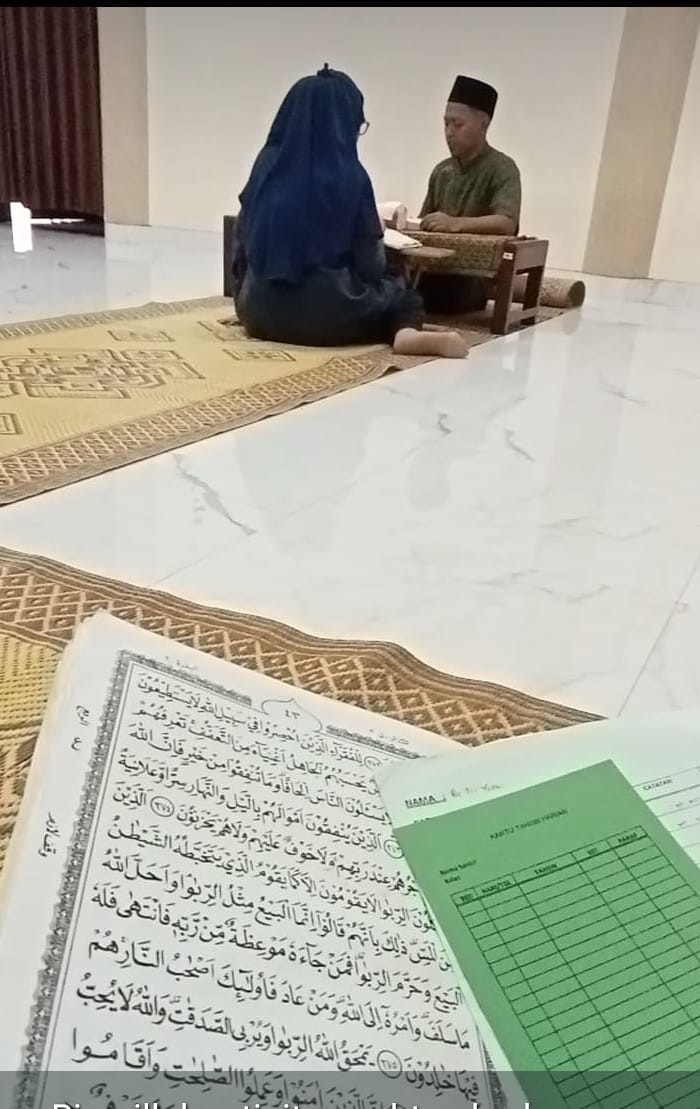 ٤٣
لِلْفُقَرَآءِ الَّذِيْنَ اُحْصِرُوْا فِيْ سَبِيْلِ اللّٰهِ لَا يَسْتَطِيْعُوْنَ
يَحْسَبُهُمُ الْجَاهِلُ اَغْنِيَآءَ مِنَ التَّعَفُّفِ تَعْرِفُهُمْ
يَسْئَلُوْنَ النَّاسَ اِلْحَافًا وَمَا تُنْفِقُوْا مِنْ خَيْرٍ فَاِنَّ اللّٰهَ
اَلَّذِيْنَ يُنْفِقُوْنَ اَمْوَالَهُمْ بِالَّيْلِ وَالنَّهَارِ سِرًّا وَعَلَانِيَةً
عِنْدَ رَبِّهِمْ وَلَا خَوْفٌ عَلَيْهِمْ وَلَا هُمْ يَحْزَنُوْنَ ٢٧٤ اَلَّذِيْنَ
الرِّبٰوا لَا يَقُوْمُوْنَ اِلَّا كَمَا يَقُوْمُ الَّذِيْ يَتَخَبَّطُهُ الشَّيْطٰنُ
مِنَ الْمَسِّ ذٰلِكَ بِاَنَّهُمْ قَالُوْٓا اِنَّمَا الْبَيْعُ مِثْلُ الرِّبٰوا وَاَحَلَّ اللّٰهُ
الْبَيْعَ وَحَرَّمَ الرِّبٰوا فَمَنْ جَآءَهٗ مَوْعِظَةٌ مِّنْ رَّبِّهٖ فَانْتَهٰى فَلَهٗ
مَا سَلَفَ وَاَمْرُهٗٓ اِلَى اللّٰهِ وَمَنْ عَادَ فَاُولٰٓئِكَ اَصْحٰبُ النَّارِ هُمْ
فِيْهَا خٰلِدُوْنَ ٢٧٥ يَمْحَقُ اللّٰهُ الرِّبٰوا وَيُرْبِى الصَّدَقٰتِ وَاللّٰهُ لَا يُحِبُّ
الَّذِيْنَ اٰمَنُوْا وَعَمِلُوا الصّٰلِحٰتِ وَاَقَامُوا
NAMA
CATATAN
KARTU TAHSIN HARIAN
Nama Santri
Kelas
NO HARI/TGL TAHSIN KET PARAF